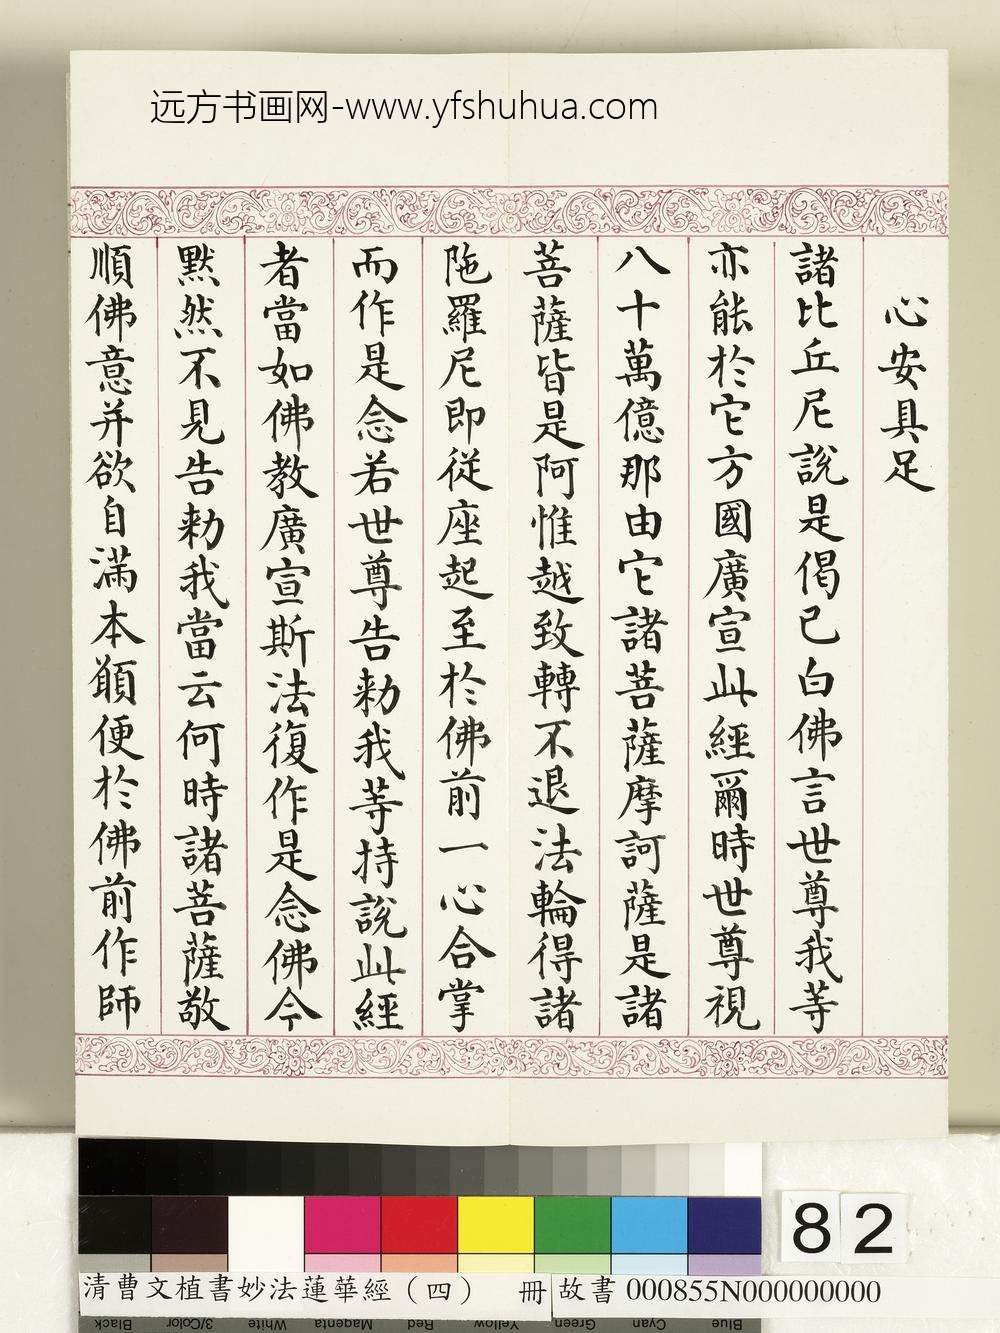 远方书画网-www.yfshuhua.com
心安具足
諸比丘尼說是偈已白佛言世尊我等
亦能於它方國廣宣此經爾時世尊視
八十萬億那由它諸菩薩摩訶薩是諸
菩薩皆是阿惟越致轉不退法輪得諸
陁羅尼即從座起至於佛前一心合掌
而作是念若世尊告勑我等持說此經
者當如佛教廣宣斯法復作是念佛今
默然不見告勑我當云何時諸菩薩敬
順佛意并欲自滿本願便於佛前作師
82
清曹文植書妙法蓮華經（四） 冊 故書 000855N000000000
Black 3/Color White Magenta Red Yellow Green Cyan Blue